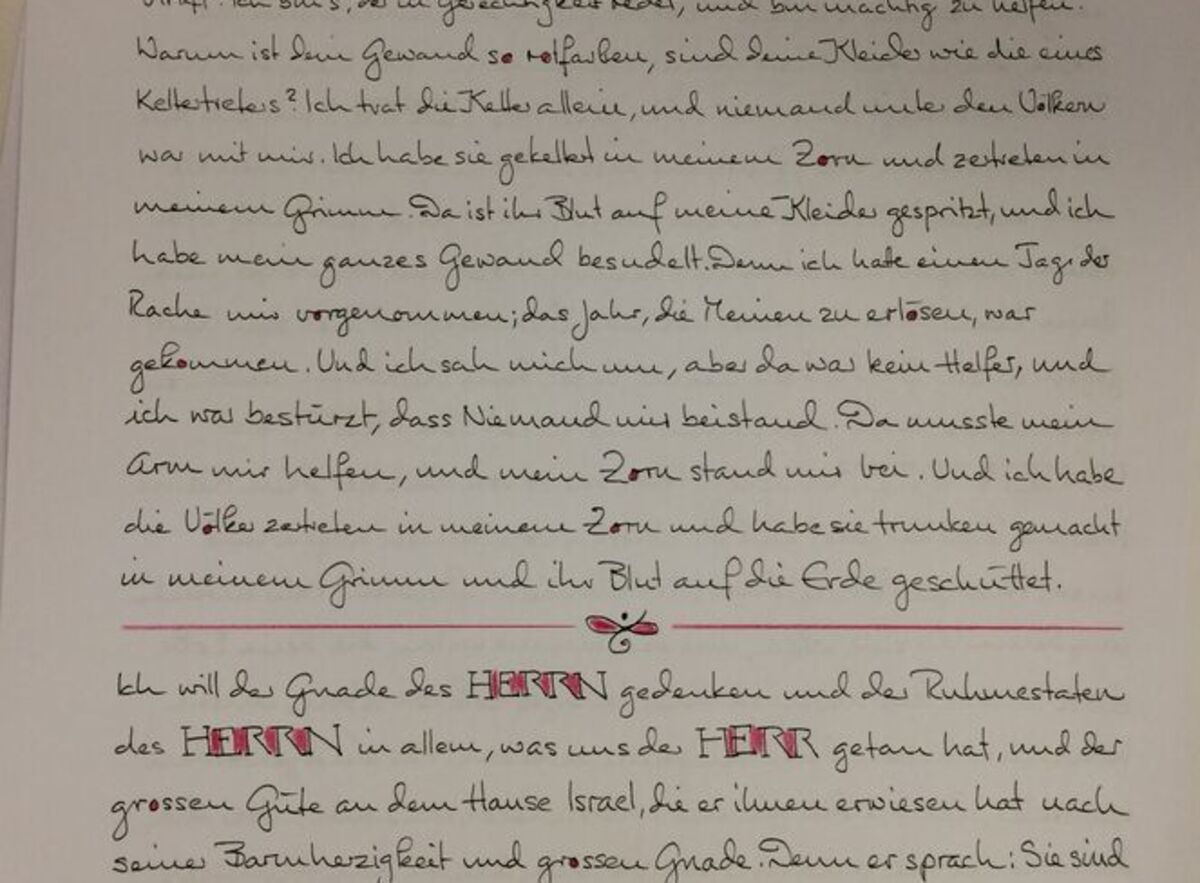 Ich bin's, der in Gerechtigkeit redet, und bin mächtig zu helfen.
Warum ist dein Gewand so rotfarben, sind deine Kleider wie die eines
Keltertreters? Ich trat die Kelter allein, und niemand unter den Völkern
war mit mir. Ich habe sie gekeltert in meinem Zorn und zertreten in
meinem Grimm. Da ist ihr Blut auf meine Kleider gespritzt, und ich
habe mein ganzes Gewand besudelt. Denn ich hatte einen Tag der
Rache mir vorgenommen; das Jahr, die Meinen zu erlösen, war
gekommen. Und ich sah mich um, aber da war kein Helfer, und
ich war bestürzt, dass Niemand mir beistand. Da musste mein
Arm mir helfen, und mein Zorn stand mir bei. Und ich habe
die Völker zertreten in meinem Zorn und habe sie trunken gemacht
in meinem Grimm und ihr Blut auf die Erde geschüttet.
Ich will der Gnade des HERRN gedenken und der Ruhmestaten
des HERRN in allem, was uns der HERR getan hat, und der
grossen Güte an dem Hause Israel, die er ihnen erwiesen hat nach
seiner Barmherzigkeit und grossen Gnade. Denn er sprach: Sie sind